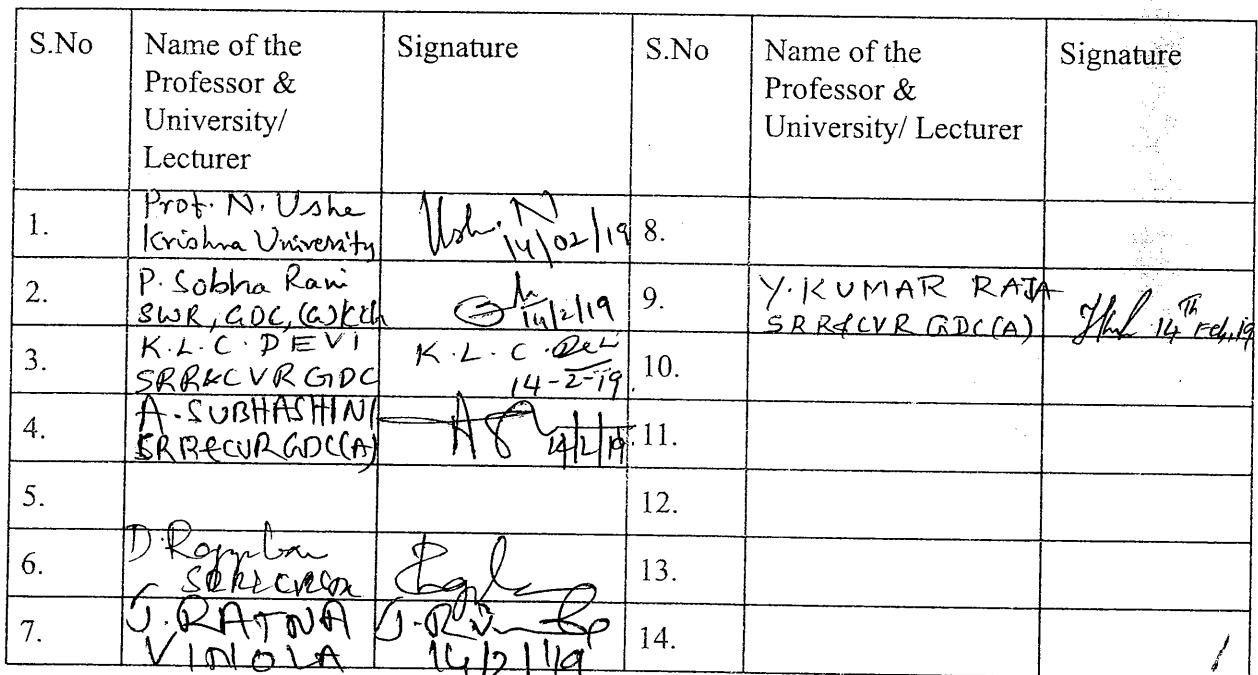 S.No
Name of the
Professor &
University/
Lecturer
Signature
S.No
Name of the
Professor &
University/ Lecturer
Signature
1.
Prof. N. Usha
Krishna University
Ush. N
14/02/19
8.
2.
P. Sobha Rani
SWR, GDC, (W) KCh
14/2/19
9.
Y. KUMAR RAJA
SRR&CVR GDC(A)
14th Feb, 19
3.
K.L.C. DEVI
SRR&CVR GDC
K.L.C. Devi
14-2-19.
10.
4.
A. SUBHASHINI
SRR&CVR GDC(A)
14/2/19
11.
5.
12.
6.
D.
13.
7.
J. RATNA
VINOLA
14/2/19
14.